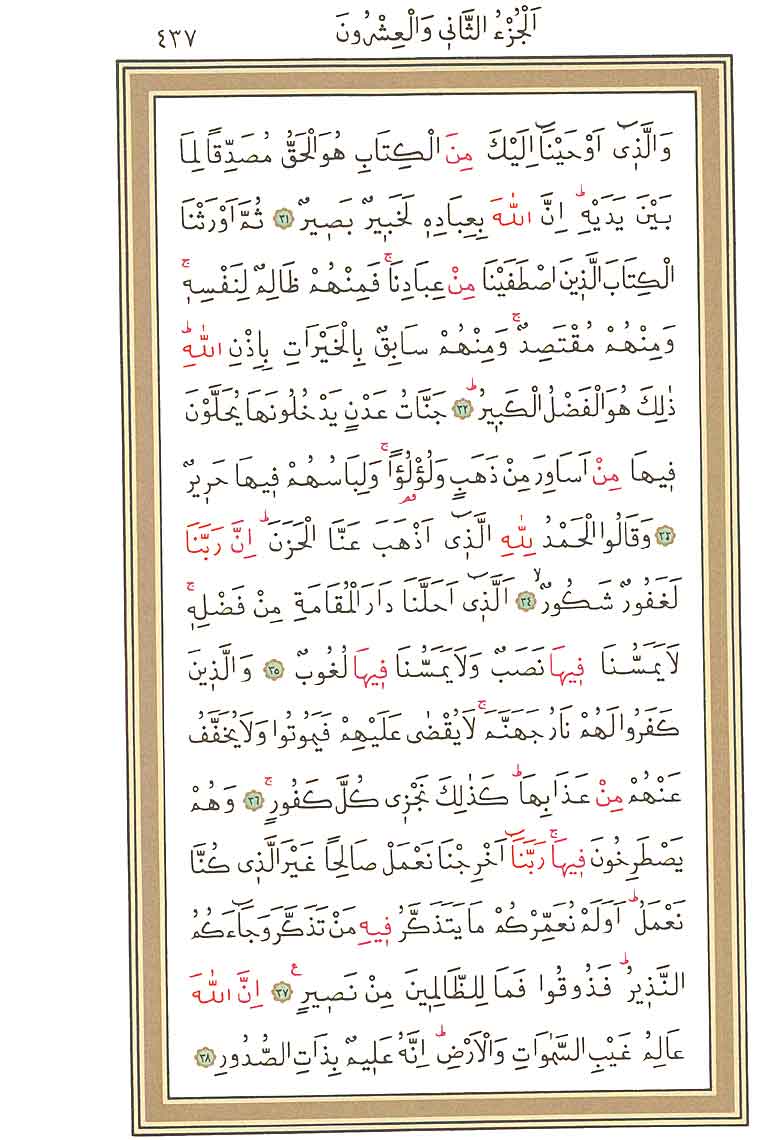 اَلْجُزْءُ الثَّانٖي وَالْعِشْرُونَ
٤٣٧
وَالَّذٖٓي اَوْحَيْنَٓا اِلَيْكَ مِنَ الْكِتَابِ هُوَ الْحَقُّ مُصَدِّقًا لِمَا
بَيْنَ يَدَيْهِؕ اِنَّ اللّٰهَ بِعِبَادِهٖ لَخَبٖيرٌ بَصٖيرٌ ﴿٣١﴾ ثُمَّ اَوْرَثْنَا
الْكِتَابَ الَّذٖينَ اصْطَفَيْنَا مِنْ عِبَادِنَاۚ فَمِنْهُمْ ظَالِمٌ لِنَفْسِهٖۚ
وَمِنْهُمْ مُقْتَصِدٌۚ وَمِنْهُمْ سَابِقٌ بِالْخَيْرَاتِ بِاِذْنِ اللّٰهِؕ
ذٰلِكَ هُوَ الْفَضْلُ الْكَبٖيرُؕ ﴿٣٢﴾ جَنَّاتُ عَدْنٍ يَدْخُلُونَهَا يُحَلَّوْنَ
فٖيهَا مِنْ اَسَاوِرَ مِنْ ذَهَبٍ وَلُؤْلُؤًاۚ وَلِبَاسُهُمْ فٖيهَا حَرٖيرٌ
﴿٣٣﴾ وَقَالُوا الْحَمْدُ لِلّٰهِ الَّذٖٓي اَذْهَبَ عَنَّا الْحَزَنَؕ اِنَّ رَبَّنَا
لَغَفُورٌ شَكُورٌۙ ﴿٣٤﴾ اَلَّذٖٓي اَحَلَّنَا دَارَ الْمُقَامَةِ مِنْ فَضْلِهٖۚ
لَا يَمَسُّنَا فٖيهَا نَصَبٌ وَلَا يَمَسُّنَا فٖيهَا لُغُوبٌ ﴿٣٥﴾ وَالَّذٖينَ
كَفَرُوا لَهُمْ نَارُ جَهَنَّمَۚ لَا يُقْضٰى عَلَيْهِمْ فَيَمُوتُوا وَلَا يُخَفَّفُ
عَنْهُمْ مِنْ عَذَابِهَاؕ كَذٰلِكَ نَجْزٖي كُلَّ كَفُورٍۚ ﴿٣٦﴾ وَهُمْ
يَصْطَرِخُونَ فٖيهَاۚ رَبَّنَٓا اَخْرِجْنَا نَعْمَلْ صَالِحًا غَيْرَ الَّذٖي كُنَّا
نَعْمَلُؕ اَوَلَمْ نُعَمِّرْكُمْ مَا يَتَذَكَّرُ فٖيهِ مَنْ تَذَكَّرَ وَجَٓاءَكُمُ
النَّذٖيرُؕ فَذُوقُوا فَمَا لِلظَّالِمٖينَ مِنْ نَصٖيرٍ ﴿٣٧﴾ اِنَّ اللّٰهَ
عَالِمُ غَيْبِ السَّمٰوَاتِ وَالْاَرْضِؕ اِنَّهُ عَلٖيمٌ بِذَاتِ الصُّدُورِ ﴿٣٨﴾